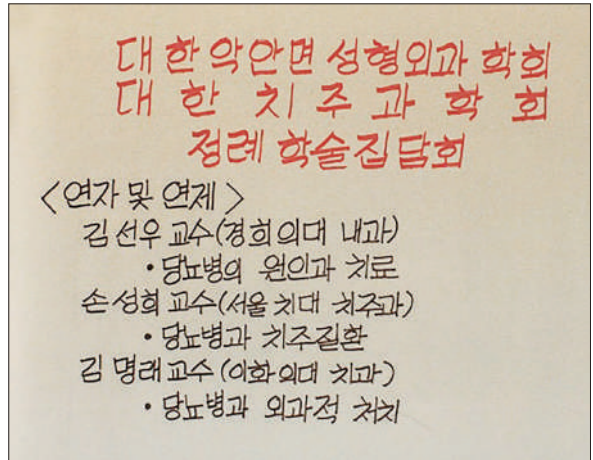 대한악안면 성형외과 학회
대 한 치 주 과 학 회
정례 학술집담회
<연자 및 연제>
김선우 교수(경희의대 내과)
• 당뇨병의 원인과 치료
손성희 교수(서울치대 치주과)
• 당뇨병과 치주질환
김명래 교수(이화의대 치과)
• 당뇨병과 외과적 처치